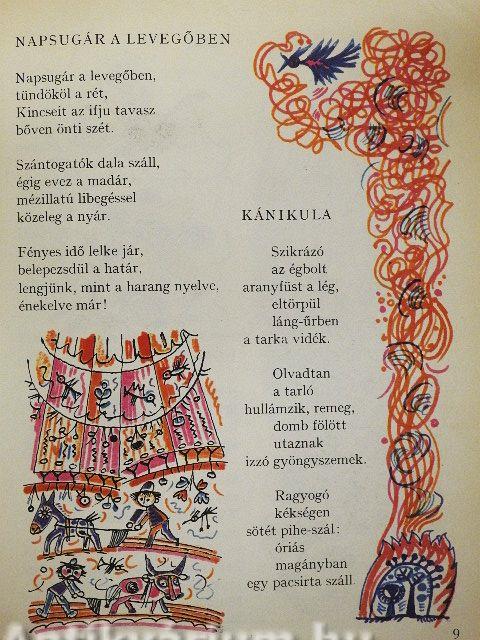 NAPSUGÁR A LEVEGŐBEN
Napsugár a levegőben,
tündököl a rét,
Kincseit az ifju tavasz
bőven önti szét.
Szántogatók dala száll,
égig evez a madár,
mézillatú libegéssel
közeleg a nyár.
Fényes idő lelke jár,
belepezsdül a határ,
lengjünk, mint a harang nyelve,
énekelve már!
KÁNIKULA
Szikrázó
az égbolt
aranyfüst a lég,
eltörpül
láng-űrben
a tarka vidék.
Olvadtan
a tarló
hullámzik, remeg,
domb fölött
utaznak
izzó gyöngyszemek.
Ragyogó
kékségen
sötét pihe-szál:
óriás
magányban
egy pacsirta száll.
9
Antikvarium.hu